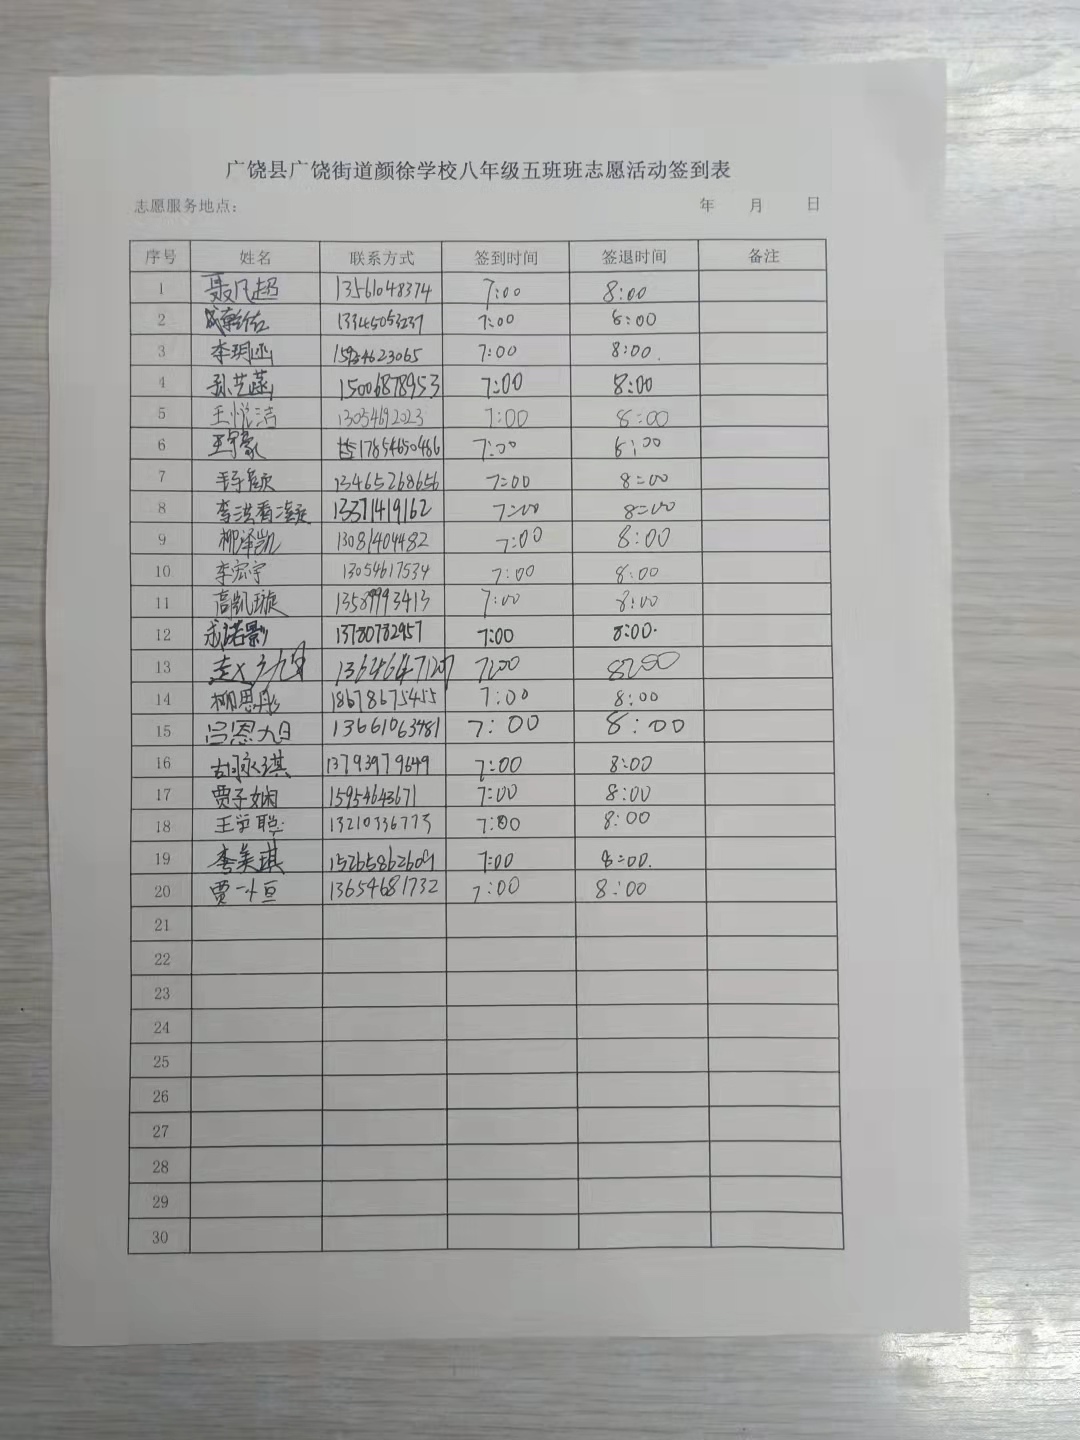 广饶县广饶街道颜徐学校八年级五班班志愿活动签到表
志愿服务地点： 年 月 日
序号 姓名 联系方式 签到时间 签退时间 备注
1 聂凡超 13561048374 7:00 8:00
2 13345053237 7:00 8:00
3 李玥涵 7:00 8:00.
4 孙艺菡 15006878953 7:00 8:00
5 王悦洁 13054692023 7:00 8:00
6 王宇豪 17854650486 7:00 8:00
7 13465268656 7:00 8:00
8 13371419162 7:00 8:00
9 柳泽凯 13081404482 7:00 8:00
10 李宏宇 13054617534 7:00 8:00
11 高凯璇 13589993413 7:00 8:00
12 成诺影 13780782957 7:00 8:00.
13 7:00 8:00
14 柳思彤 18678675455 7:00 8:00
15 吕恩旭 13661063481 7:00 8:00
16 胡永琪 13793979649 7:00 8:00
17 贾子娴 15954643671 7:00 8:00
18 王学聪 13210336773 7:00 8:00
19 李美琪 15265862609 7:00 8:00.
20 贾一恒 13654681732 7:00 8:00
21
22
23
24
25
26
27
28
29
30